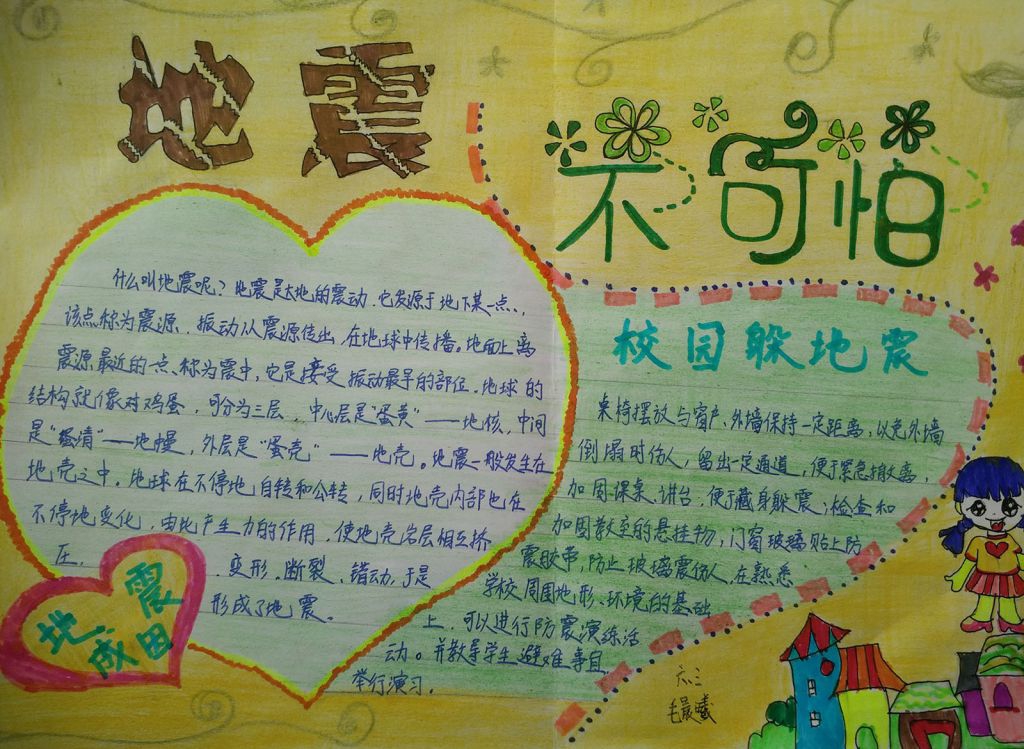 地震
不可怕
什么叫地震呢？地震是大地的震动，它发源于地下某一点，
该点称为震源，振动从震源传出，在地球中传播。地面上离
震源最近的一点，称为震中，它是接受振动最早的部位。地球的
结构就像对鸡蛋，可分为三层，中心层是“蛋黄”——地核，中间
是“蛋清”——地幔，外层是“蛋壳”——地壳。地震一般发生在
地壳之中。地球在不停地自转和公转，同时地壳内部也在
不停地变化，由此产生力的作用，使地壳岩层相互挤
压，变形、断裂、错动，于是
形成了地震。
地震
成因
校园躲地震
桌椅摆放与窗户、外墙保持一定距离，以免外墙
倒塌时伤人，留出一定通道，便于紧急撤离，
加固课桌、讲台，便于藏身躲震；检查和
加固教室的悬挂物，门窗玻璃贴上防
震胶带，防止玻璃震伤人，在熟悉
学校周围地形、环境的基础
上，可以进行防震演练活
动。并教导学生避难事自
举行演习。
六、三
毛晨曦